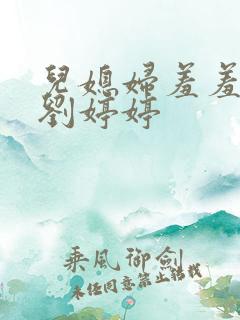 兒媳婦羞羞
劉婷婷
乘風御劍
未经同意禁止转载